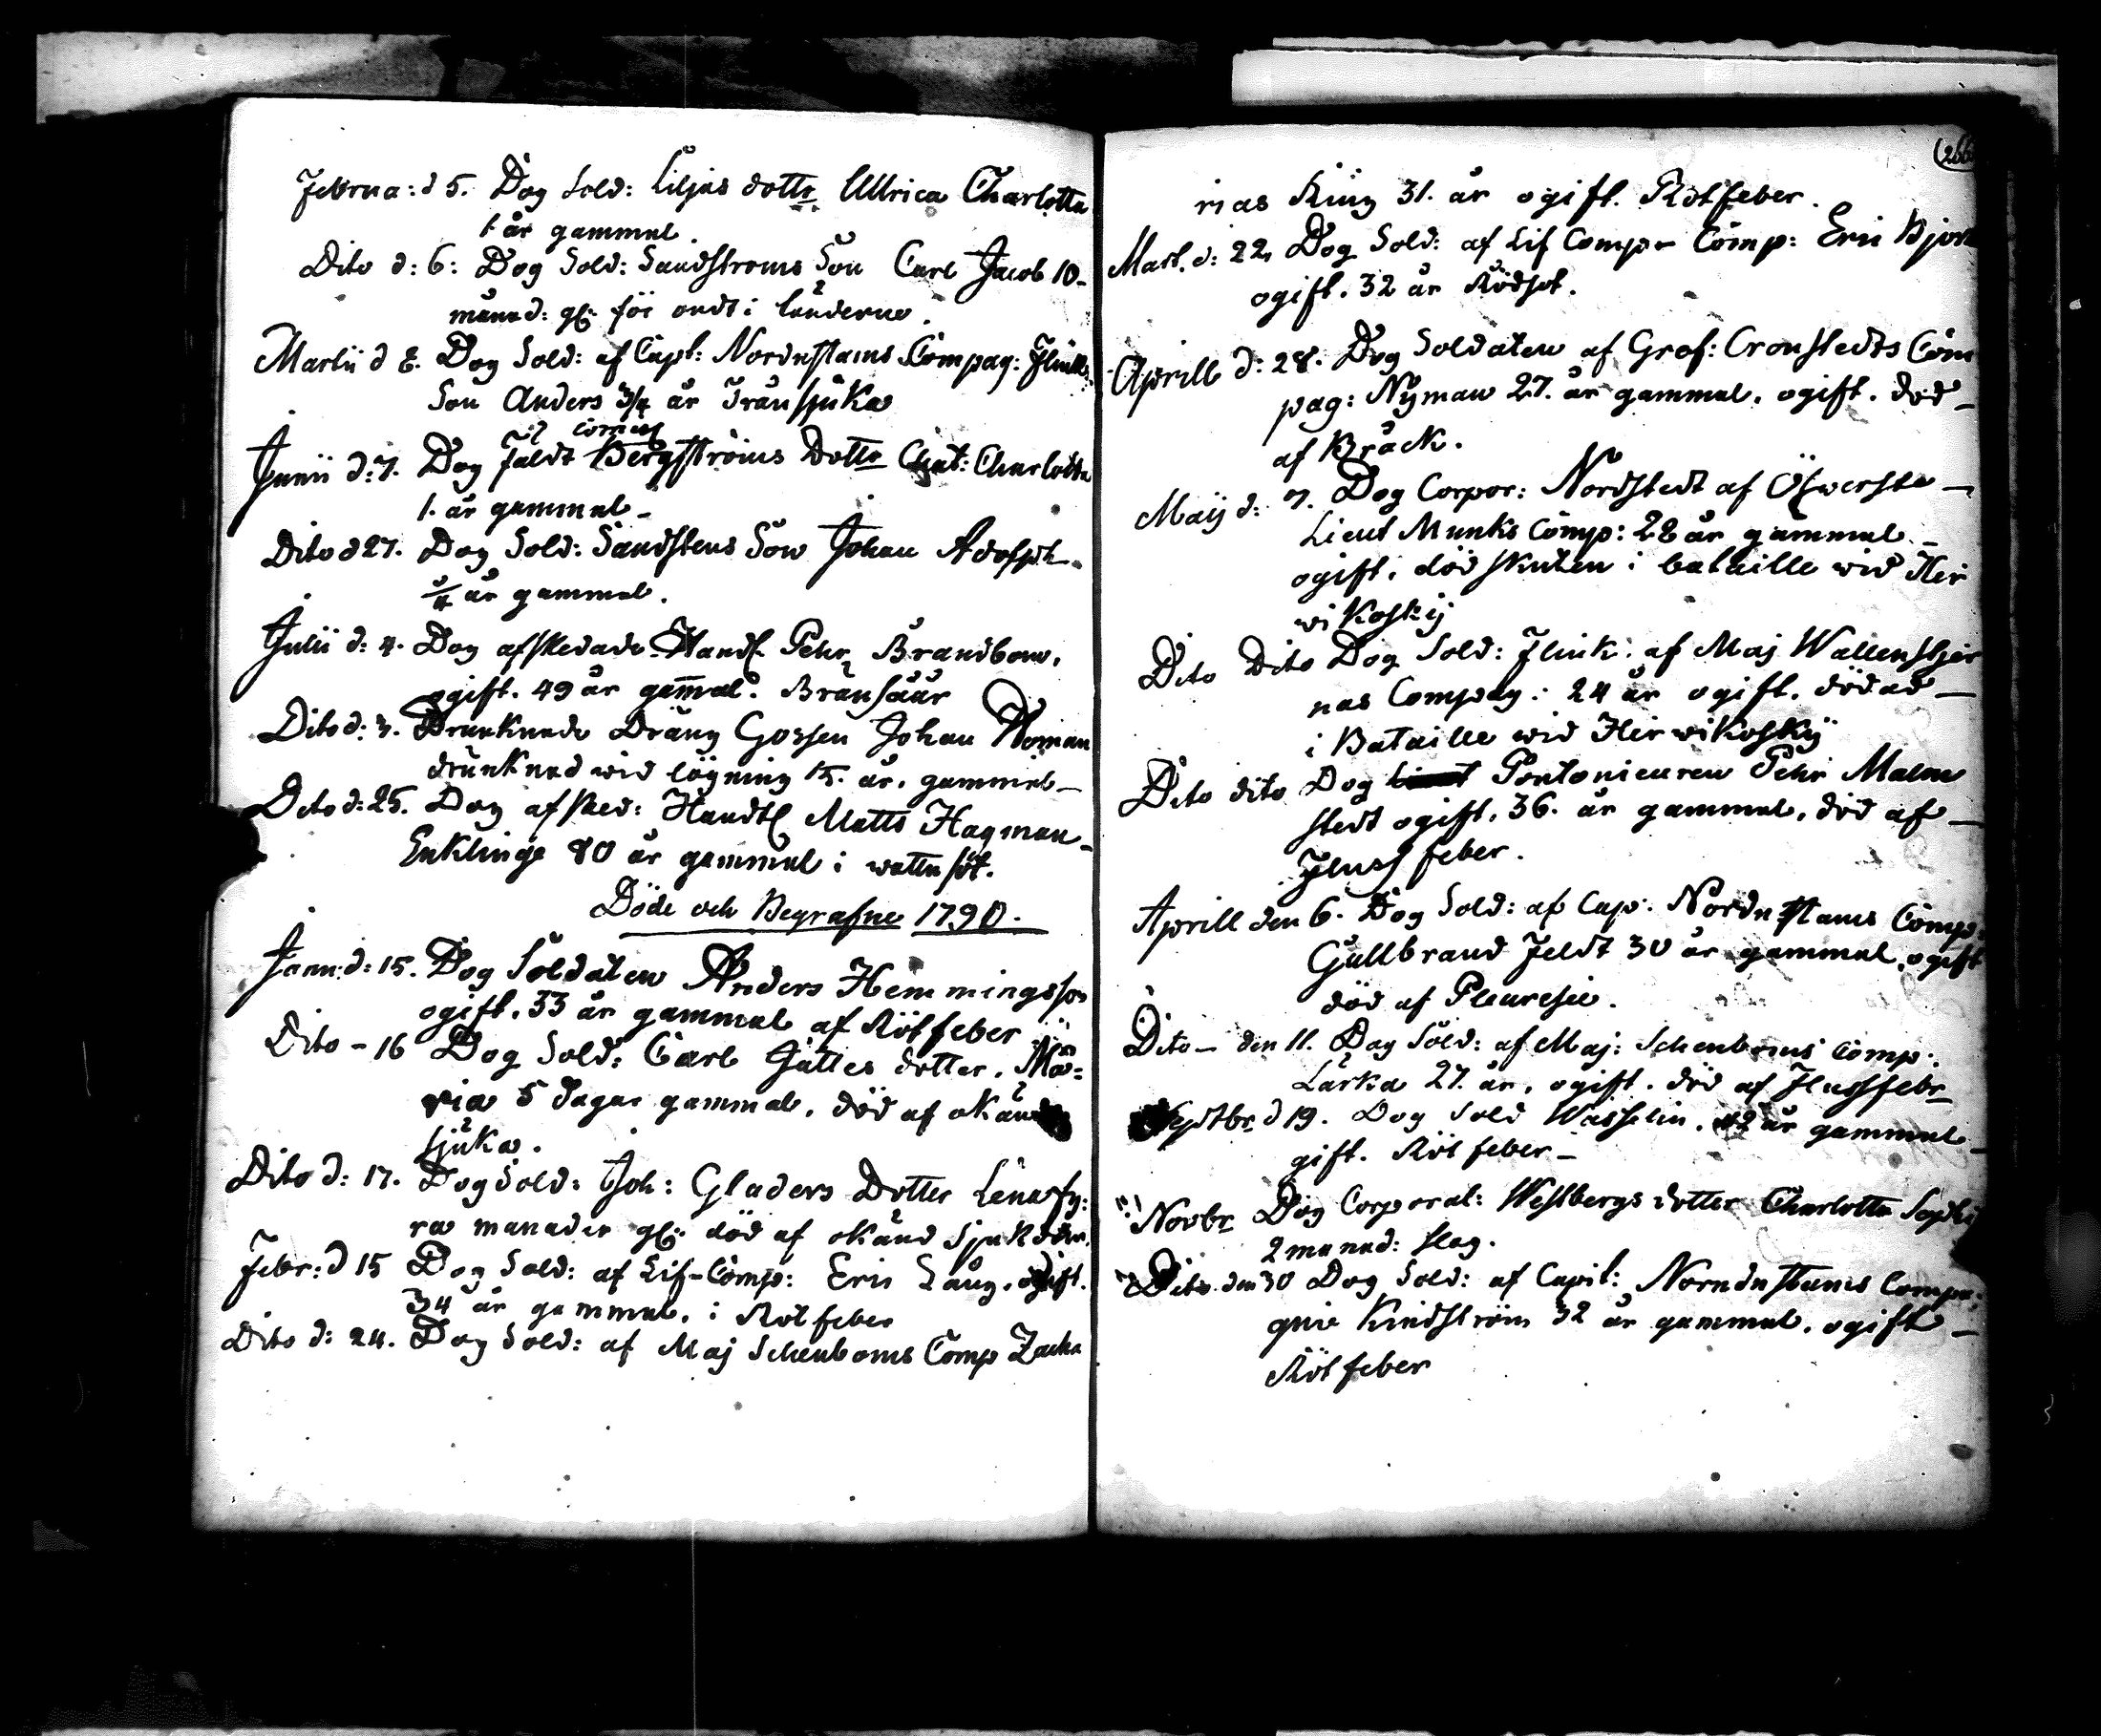 Februa: d 5. Dog Sold: Liljas dottr Ullrica Charlotta
1 år gammal.
Dito d: 6: Dog Sold: Sandstroms Son Carl Jacob 10-
månad: gl: för ondt i tänderna.
Martii d 8. Dog Sold: af Capt: Nordnstams Compag: Flinks
Son Anders 3/4 år Trånsjuka
Junii d: 7. Dog Feldt Bergströms Dottr Chat: Charlotta
1. år gammal -
Dito d 27. Dog Sold: Sandstens Son Johan Adolph
3/4 år gammal.
Julii d: 4. Dog afskedade Handtl Pehr Brandbom.
ogift. 49 år gammal. Bränsåår
Dito d: 3. Drunknade Dräng Gossen Johan Woman
drunknad wid lögning 15. år. gammal -
Dito d: 25. Dog afsked: Handtl Matts Hagman -
Enklinge 80 år gammal i wattusot.
Döde och Begrafne 1790.
Janu: d: 15. Dog Soldaten Anders Hemmingsson
ogift. 33 år gammal af Rötfeber
Dito - 16 Dog Sold: Carl Jättes dotter. Ma=
ria 5 dagar gammal, död af okänd
sjuka.
Dito d: 17. Dog Sold: Joh: Gladers Dotter Lena fy:
ra manader gl: död af okänd sjukdom.
Febr: d 15 Dog Sold: af Lif-Comp: Eric Lång. ogift.
34 år gammal. i Rötfeber
Dito d: 24. Dog Sold: af Maj Schenboms Comp Zacha
rias King 31. år ogift. Rötfeber.
Mart. d: 22, Dog Sold: af Lif Compr Comp: Eric Bjork
ogift. 32 år Rödsot.
Aprill d: 28. Dog Soldaten af Gref: Cronstedts Com
pag: Nyman 27. år gammal, ogift. död -
af Bråck.
Maij d: 7. Dog Corpor: Nordstedt af Öfwerste -
Lieut Munks Comp: 28 år gammal -
ogift, död skuten i bataille wid Keir
wikoskij
Dito Dito Dog Sold: Flink: af Maj Wallenstjer
nas Compag: 24 år ogift. död ad -
i Bataille wid Keirwikoskij
Dito dito Dog Pontonieuren Pehr Malm
stedt ogift. 36. år gammal, död af -
Fluss feber.
Aprill den 6. Dog Sold: af Cap: Nordnstams Comp
Gullbrand Feldt 30 år gammal, ogift
död af Pleuresie.
Dito - den 11. Dog Sold: af Maj: Schenboms Comp:
Lärka 27. år, ogift. död af Flussfebr
Septbr d 19. Dog Sold Wesselin. 42 år gammal
gift. Rötfeber -
Novbr Dog Corporal: Westbergs dotter Charlotta Sophi
2 manad: slag.
Dito den 30 Dog Sold: af Capit: Norndnstams Compa:
gnie Kindström 32 år gammal. ogift -
Rötfeber